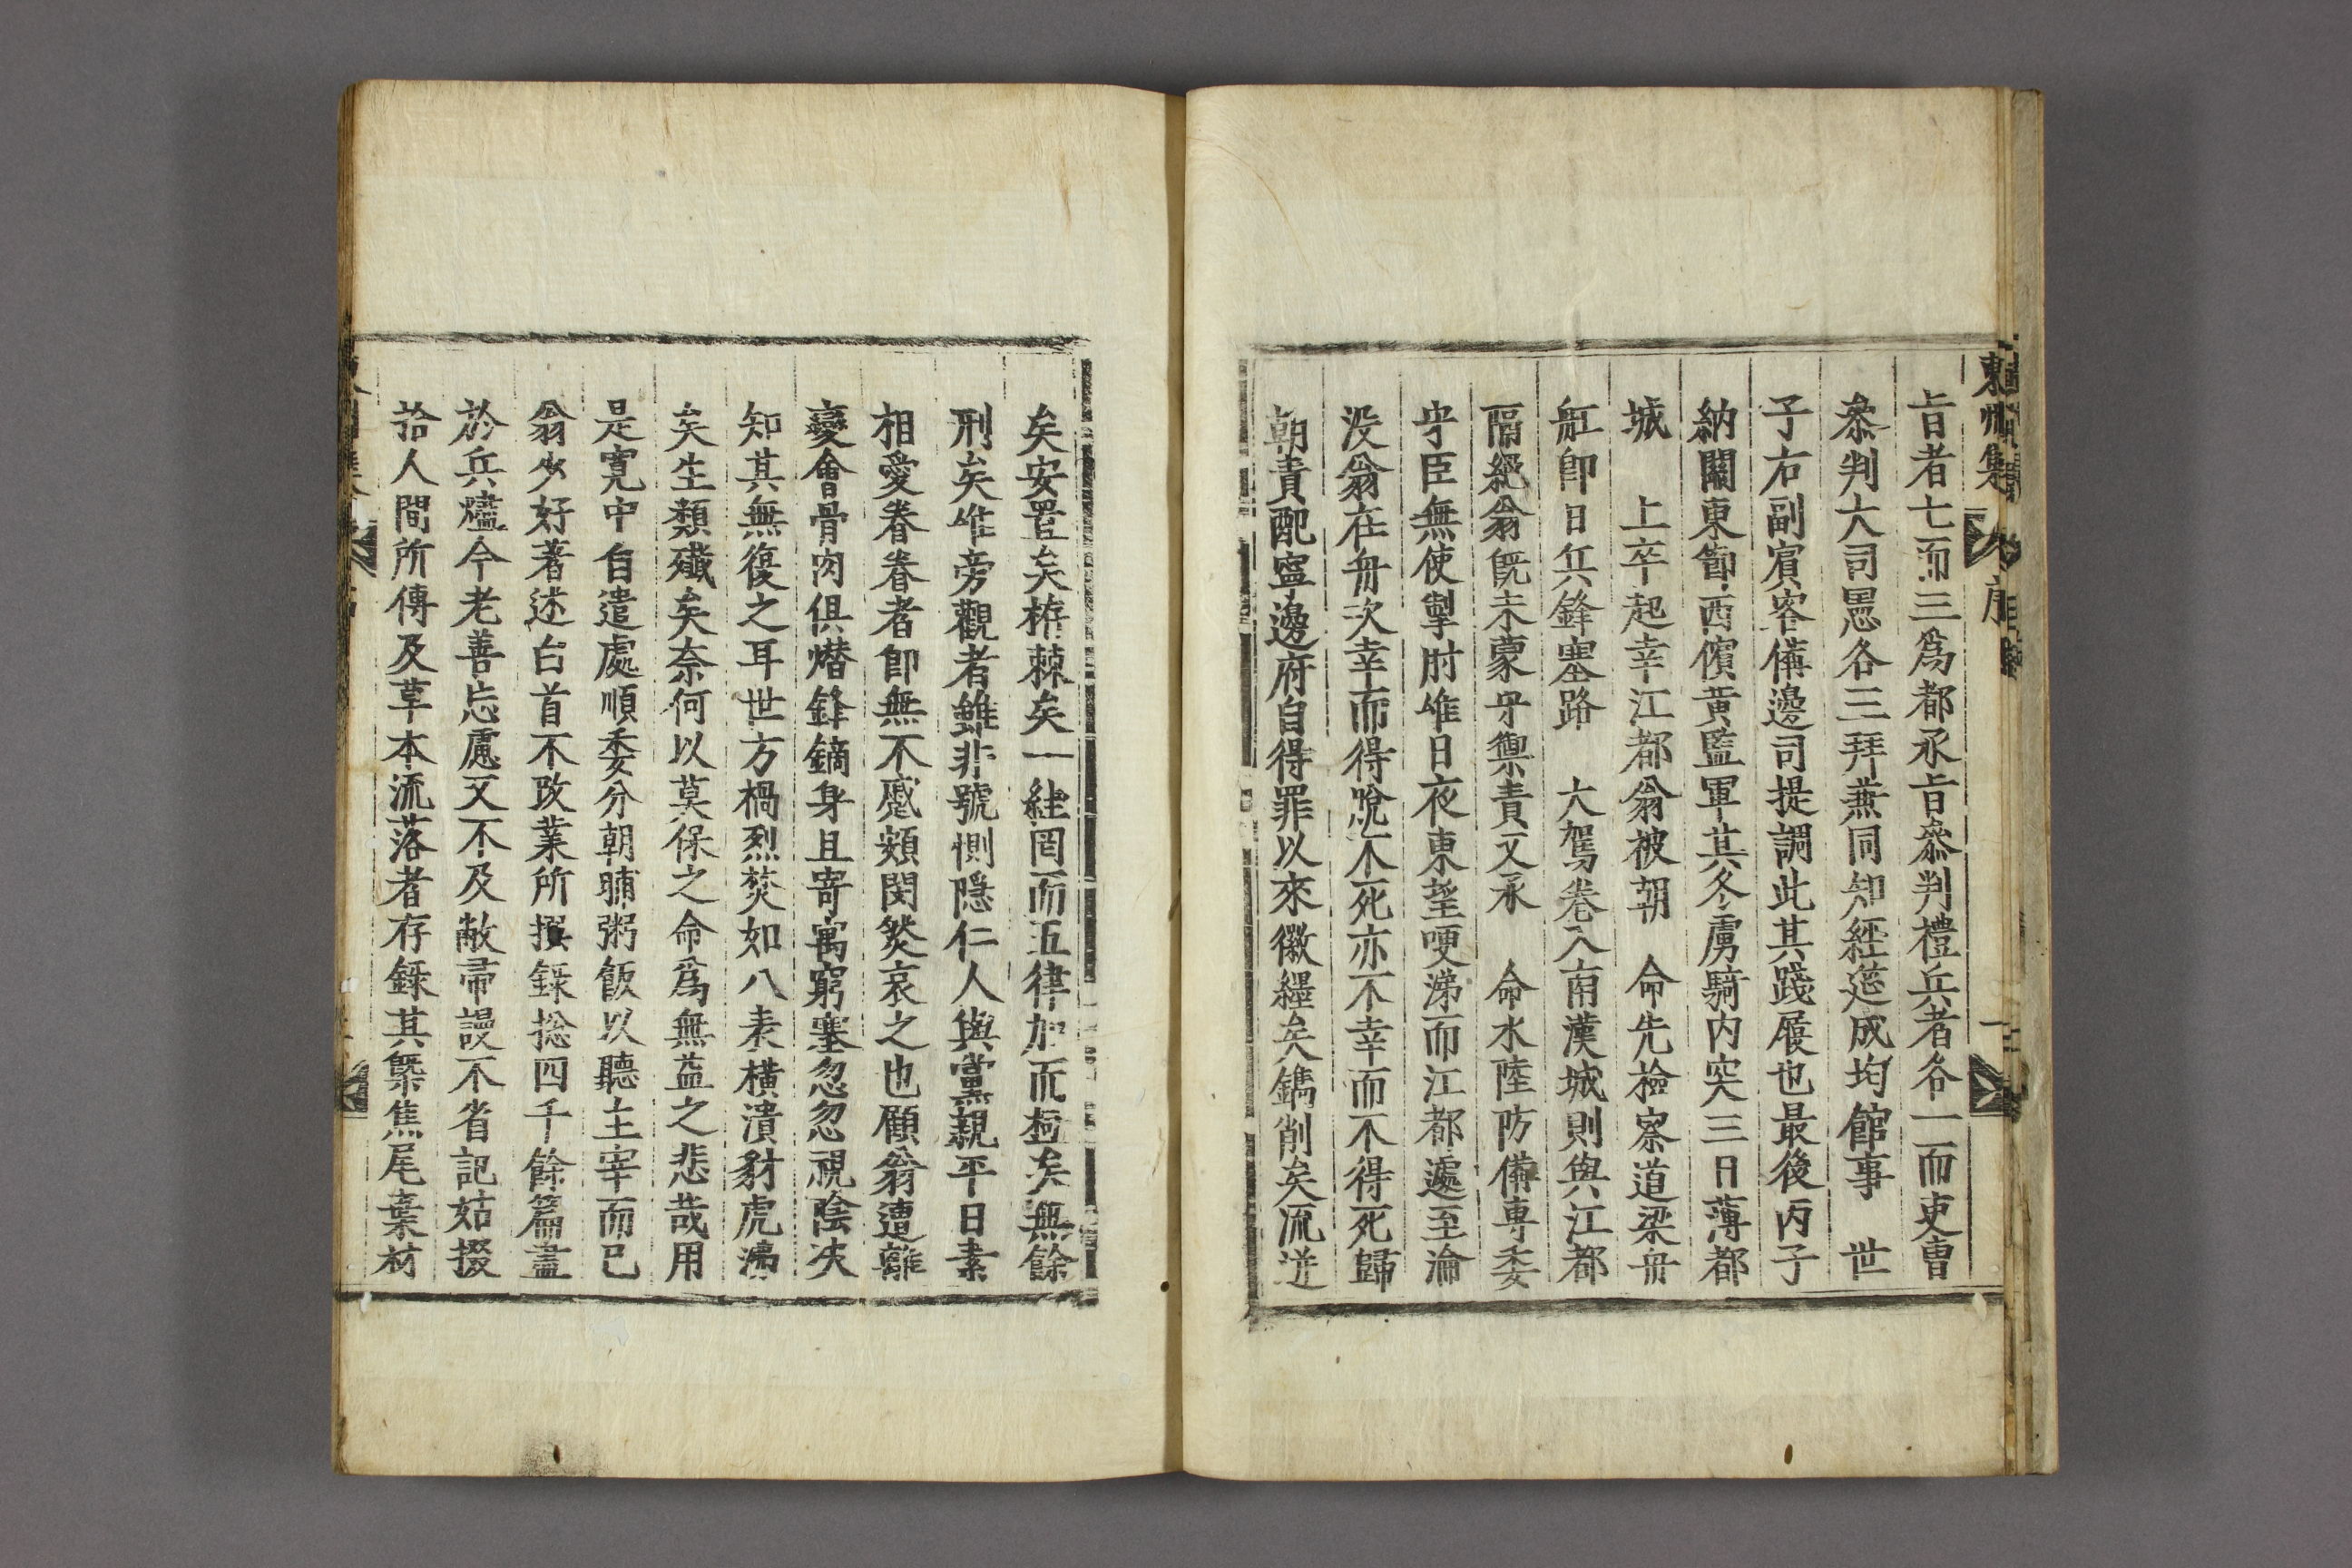 東州集 序
旨者七而三爲都承旨叅判禮兵者各一而吏曹
叅判大司馬各三拜兼同知經筵成均館事 世
子右副賓客僃邊司提調此其踐履也最後丙子
納關東節西儐黃監軍其冬虜騎內突三日薄都
城 上卒起幸江都翁被朝 命先檢察道梁舟
舡卽日兵鋒塞路 大駕卷入南漢城則與江都
隔絕翁旣未蒙守禦責又承 命水陸防備專委
守臣無使掣肘唯日夜東望哽涕而江都遽至淪
沒翁在舟次幸而得脫不死亦不幸而不得死歸
朝責配寧邊府自得罪以來徽纆矣鐫削矣流迸
矣安置矣栫棘矣一絓罔而五律加而極矣無餘
刑矣唯旁觀者雖非號惻隱仁人與黨親平日素
相愛眷眷者卽無不蹙頞閔焂哀之也顧翁遭離
變會骨肉俱熸鋒鏑身且寄寓窮塞忽忽視陰决
知其無復之耳世方禍烈焚如八表橫潰豺虎沸
矣生類殲矣奈何以莫保之命爲無益之悲哉用
是寬中自遣處順委分朝晡粥飯以聽主宰而已
翁少好著述白首不改業所撰錄捴四千餘篇盡
於兵燼今老善忘慮又不及敝帚謾不省記姑掇
拾人間所傳及草本流落者存錄其槩焦尾棄材